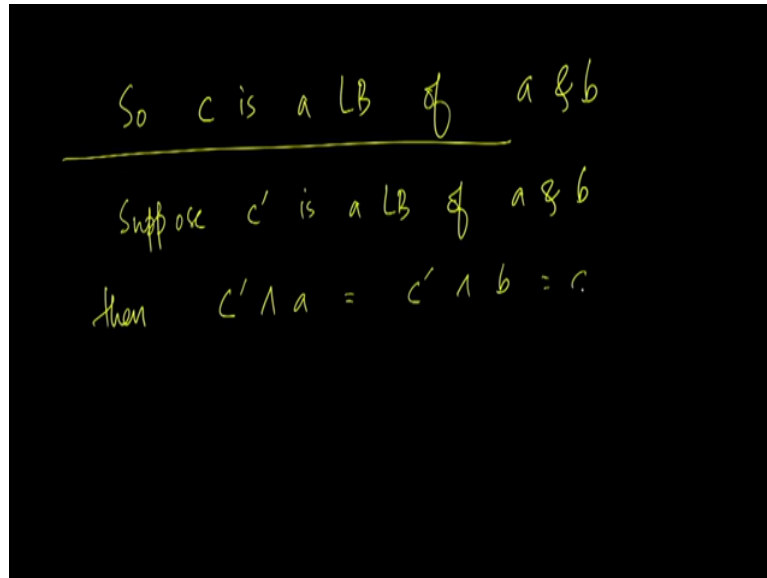 So c is a LB of a & b
Suppose c' is a LB of a & b
then c' ∧ a = c' ∧ b = c